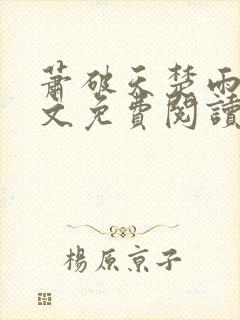 蕭破天楚雨
文免費閱讀
楊原京子